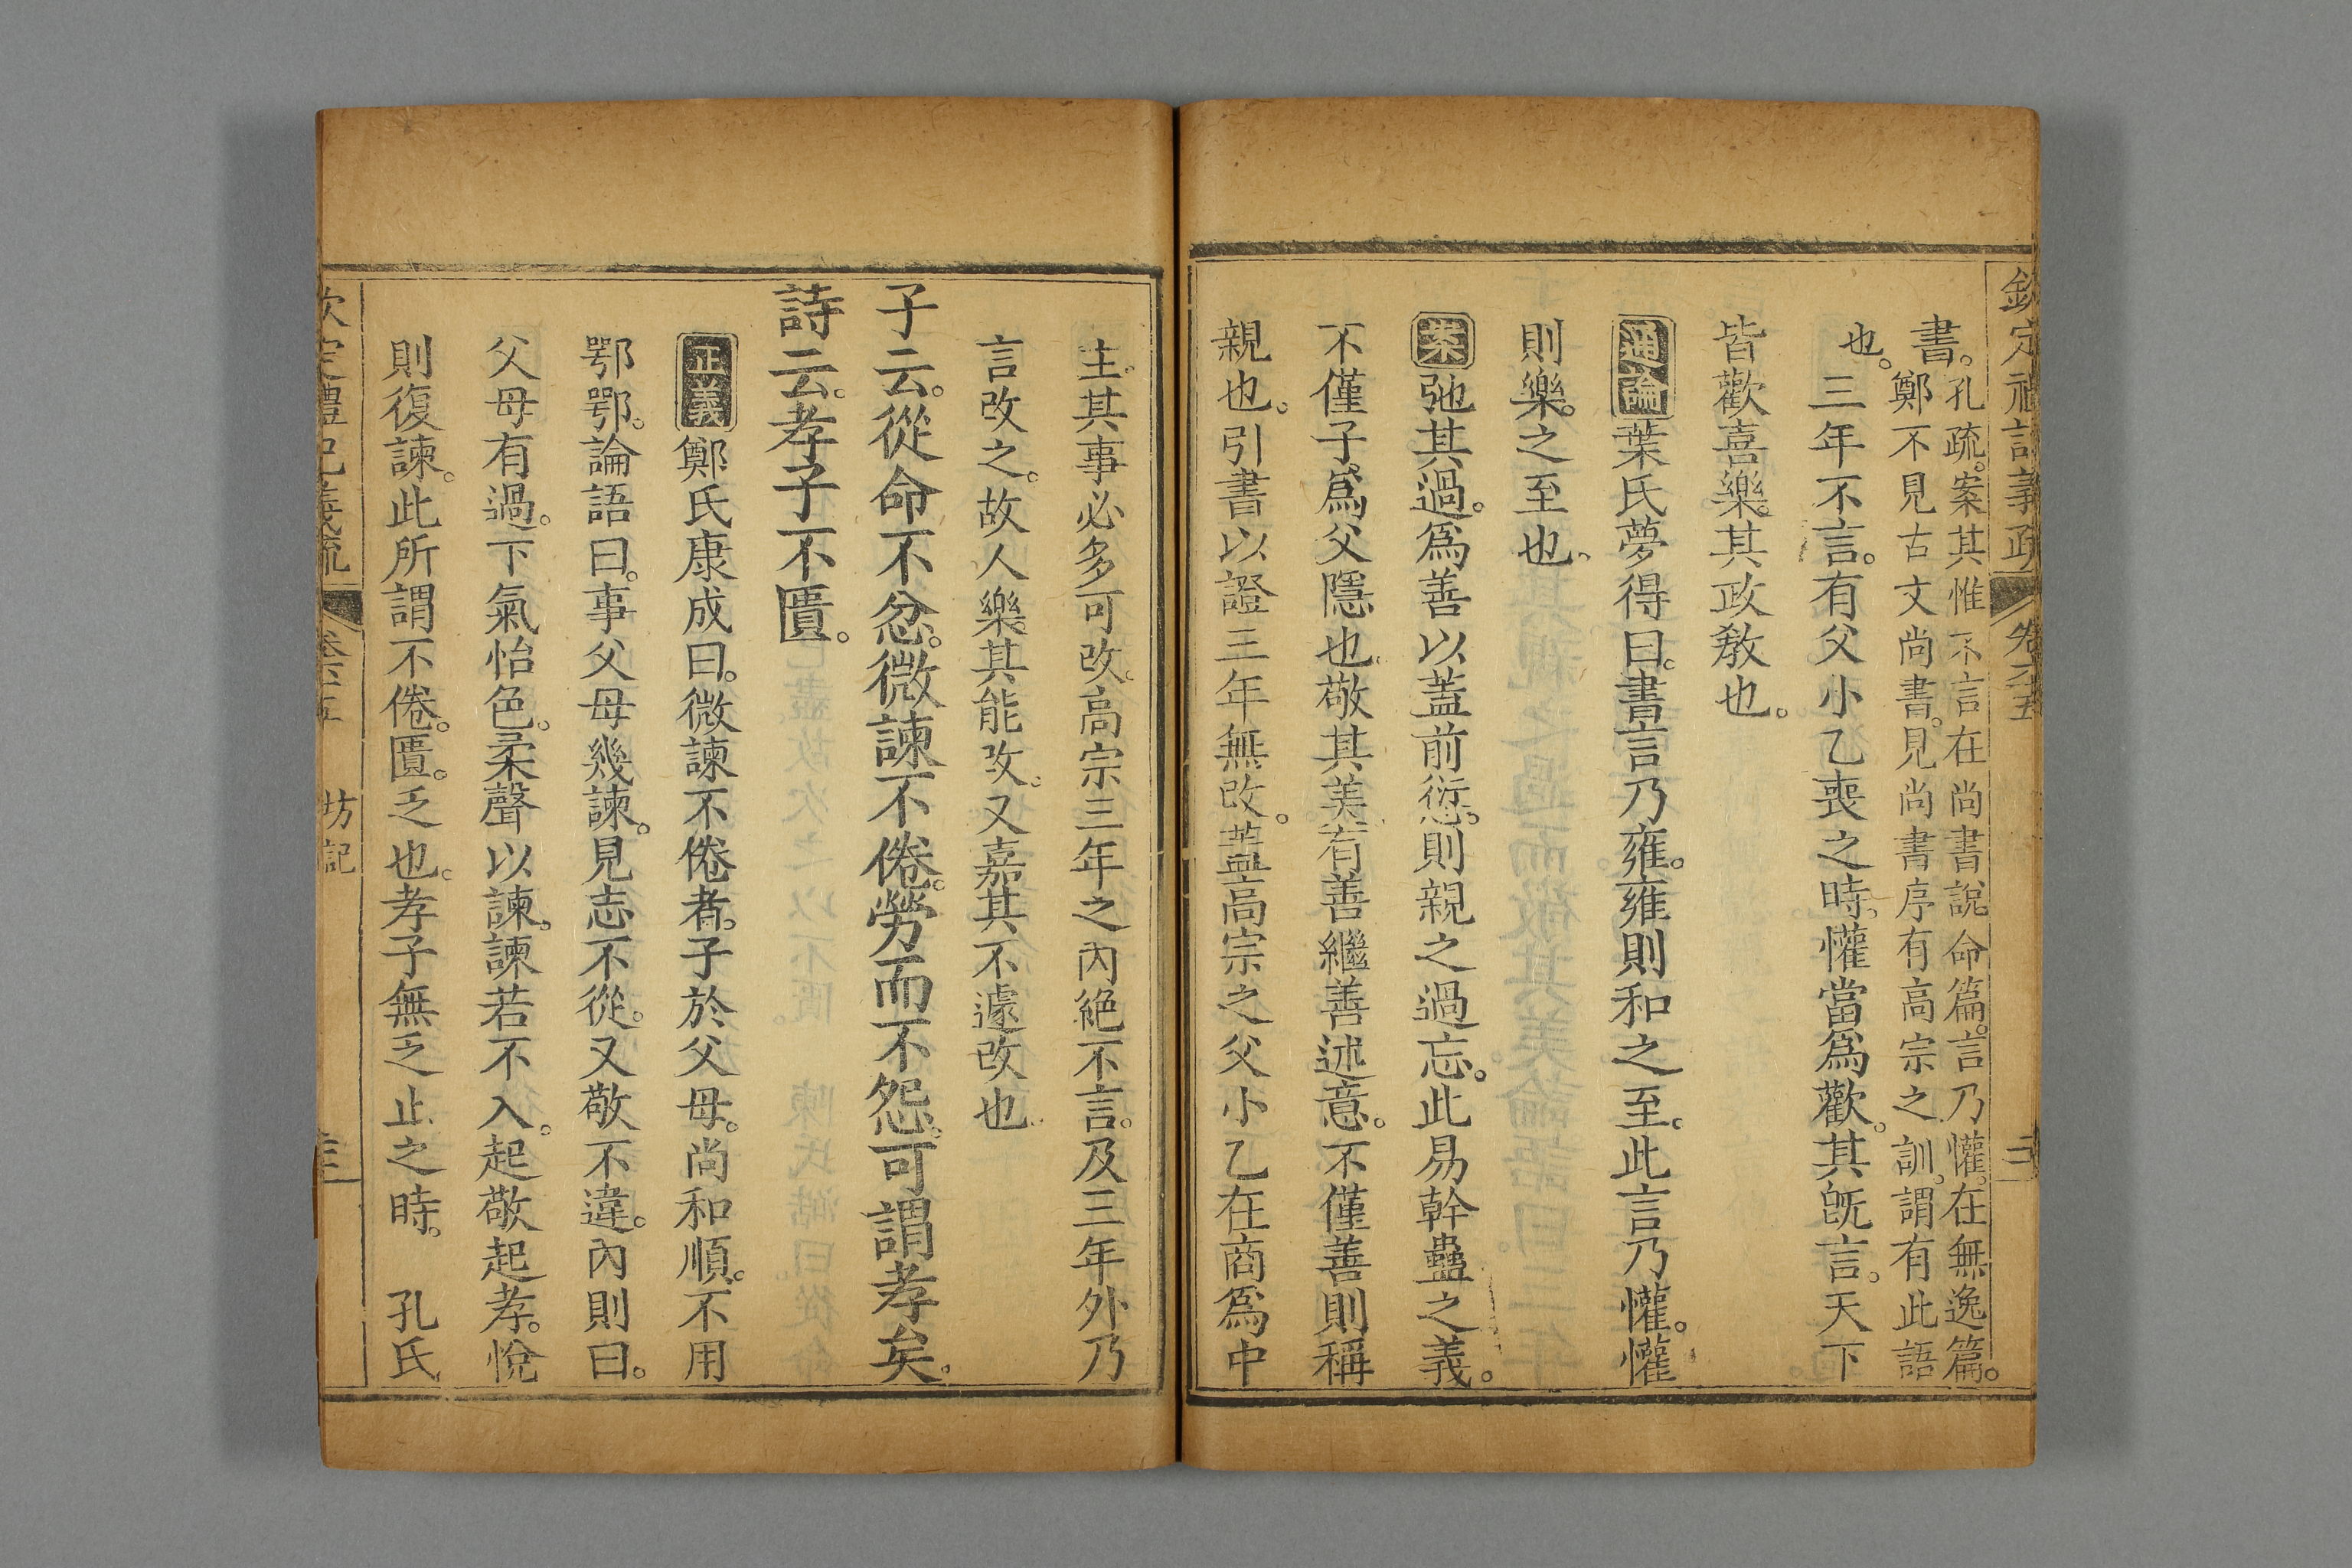 欽定禮記義疏 卷六十五 二
書。孔疏。案其惟不言在尚書說命篇。言乃懽。在無逸篇。
鄭不見古文尚書。見尚書序有高宗之訓。謂有此語
也。三年不言。有父小乙喪之時。懽當爲歡。其旣言。天下
皆歡喜樂。其政教也。
通論 葉氏夢得曰。書言乃雍。雍則和之至。此言乃懽。懽
則樂。之至也。
案 弛其過。爲善以蓋前愆。則親之過忘。此易幹蠱之義。
不僅子爲父隱也。敬其美。有善繼善述意。不僅善則稱
親也。引書以證三年無改。蓋高宗之父小乙在商爲中
主。其事必多可改。高宗三年之內絕不言。及三年外乃
言改之。故人樂其能改。又嘉其不遽改也。
子云。從命不忿。微諫不倦。勞而不怨。可謂孝矣。
詩云。孝子不匱。
正義 鄭氏康成曰。微諫不倦者。子於父母。尚和順。不用
鄂鄂。論語曰。事父母幾諫。見志不從。又敬不違。內則曰。
父母有過。下氣怡色。柔聲以諫。諫若不入。起敬起孝。悅
則復諫。此所謂不倦。匱。乏也。孝子無乏止之時。 孔氏
欽定禮記義疏 卷六十五 坊記